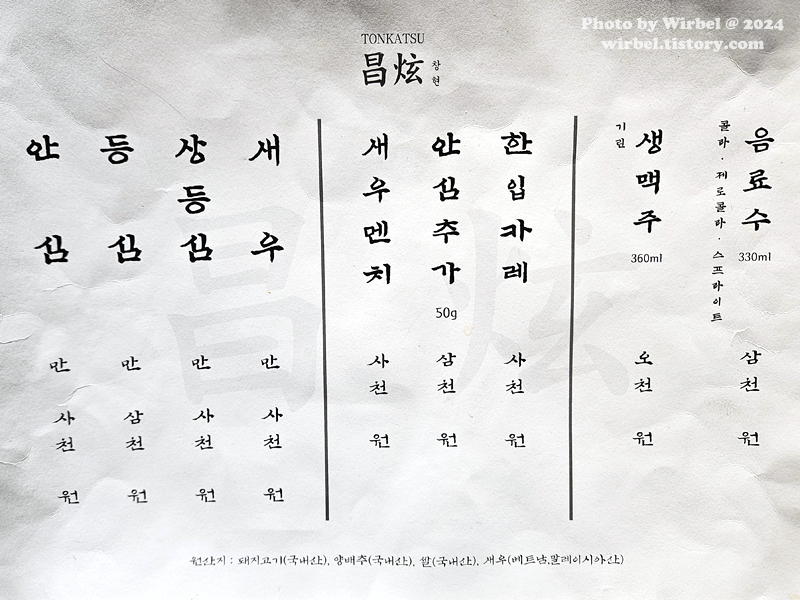 Photo by Wirbel @ 2024
wirbel.tistory.com
TONKATSU
昌炫
창현
안심
만
사천
원
등심
만
삼천
원
상등심
만
사천
원
새우
만
사천
원
새우멘치
사천
원
안심추가
50g
삼천
원
한입카레
사천
원
기린
생맥주
360ml
오천
원
콜라 · 제로콜라 · 스프라이트
음료수
330ml
삼천
원
원산지 : 돼지고기(국내산), 양배추(국내산), 쌀(국내산), 새우(베트남,말레이시아산)